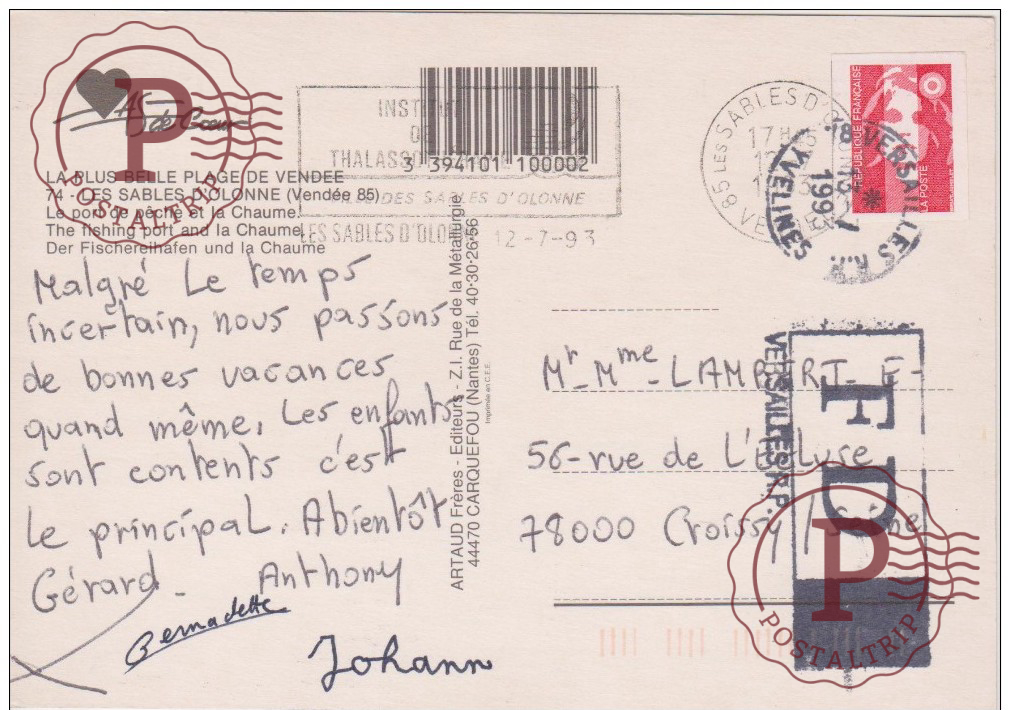 As de Coeur
LA PLUS BELLE PLAGE DE VENDEE
74 - LES SABLES D'OLONNE (Vendée 85)
Le port de pêche et la Chaume.
The fishing port and la Chaume
Der Fischereihafen und la Chaume
P
POSTALTRIP
INSTITUT
DE
THALASSO
DES SABLES D'OLONNE
LES SABLES D'OLONNE 12-7-93
3 394101 100002
85 LES SABLES D'O
17H
VENDEE
78 VERSAILLES R.P.
YVELINES
RÉPUBLIQUE FRANÇAISE
LA POSTE
Malgré Le temps
incertain, nous passons
de bonnes vacances
quand même. Les enfants
sont contents c'est
Le principal. Abientôt
Gérard - Anthony
Bernadette
Johann
ARTAUD Frères - Editeurs - Z.I. Rue de la Métallurgie
44470 CARQUEFOU (Nantes) Tél. 40·30·26·56
Imprimée en C.E.E.
Mr-Mme-LAMBERT-E-
56-rue de L'Ecluse
78000 Croissy / Seine
VERSAILLES R.P.
FD
P
POSTALTRIP